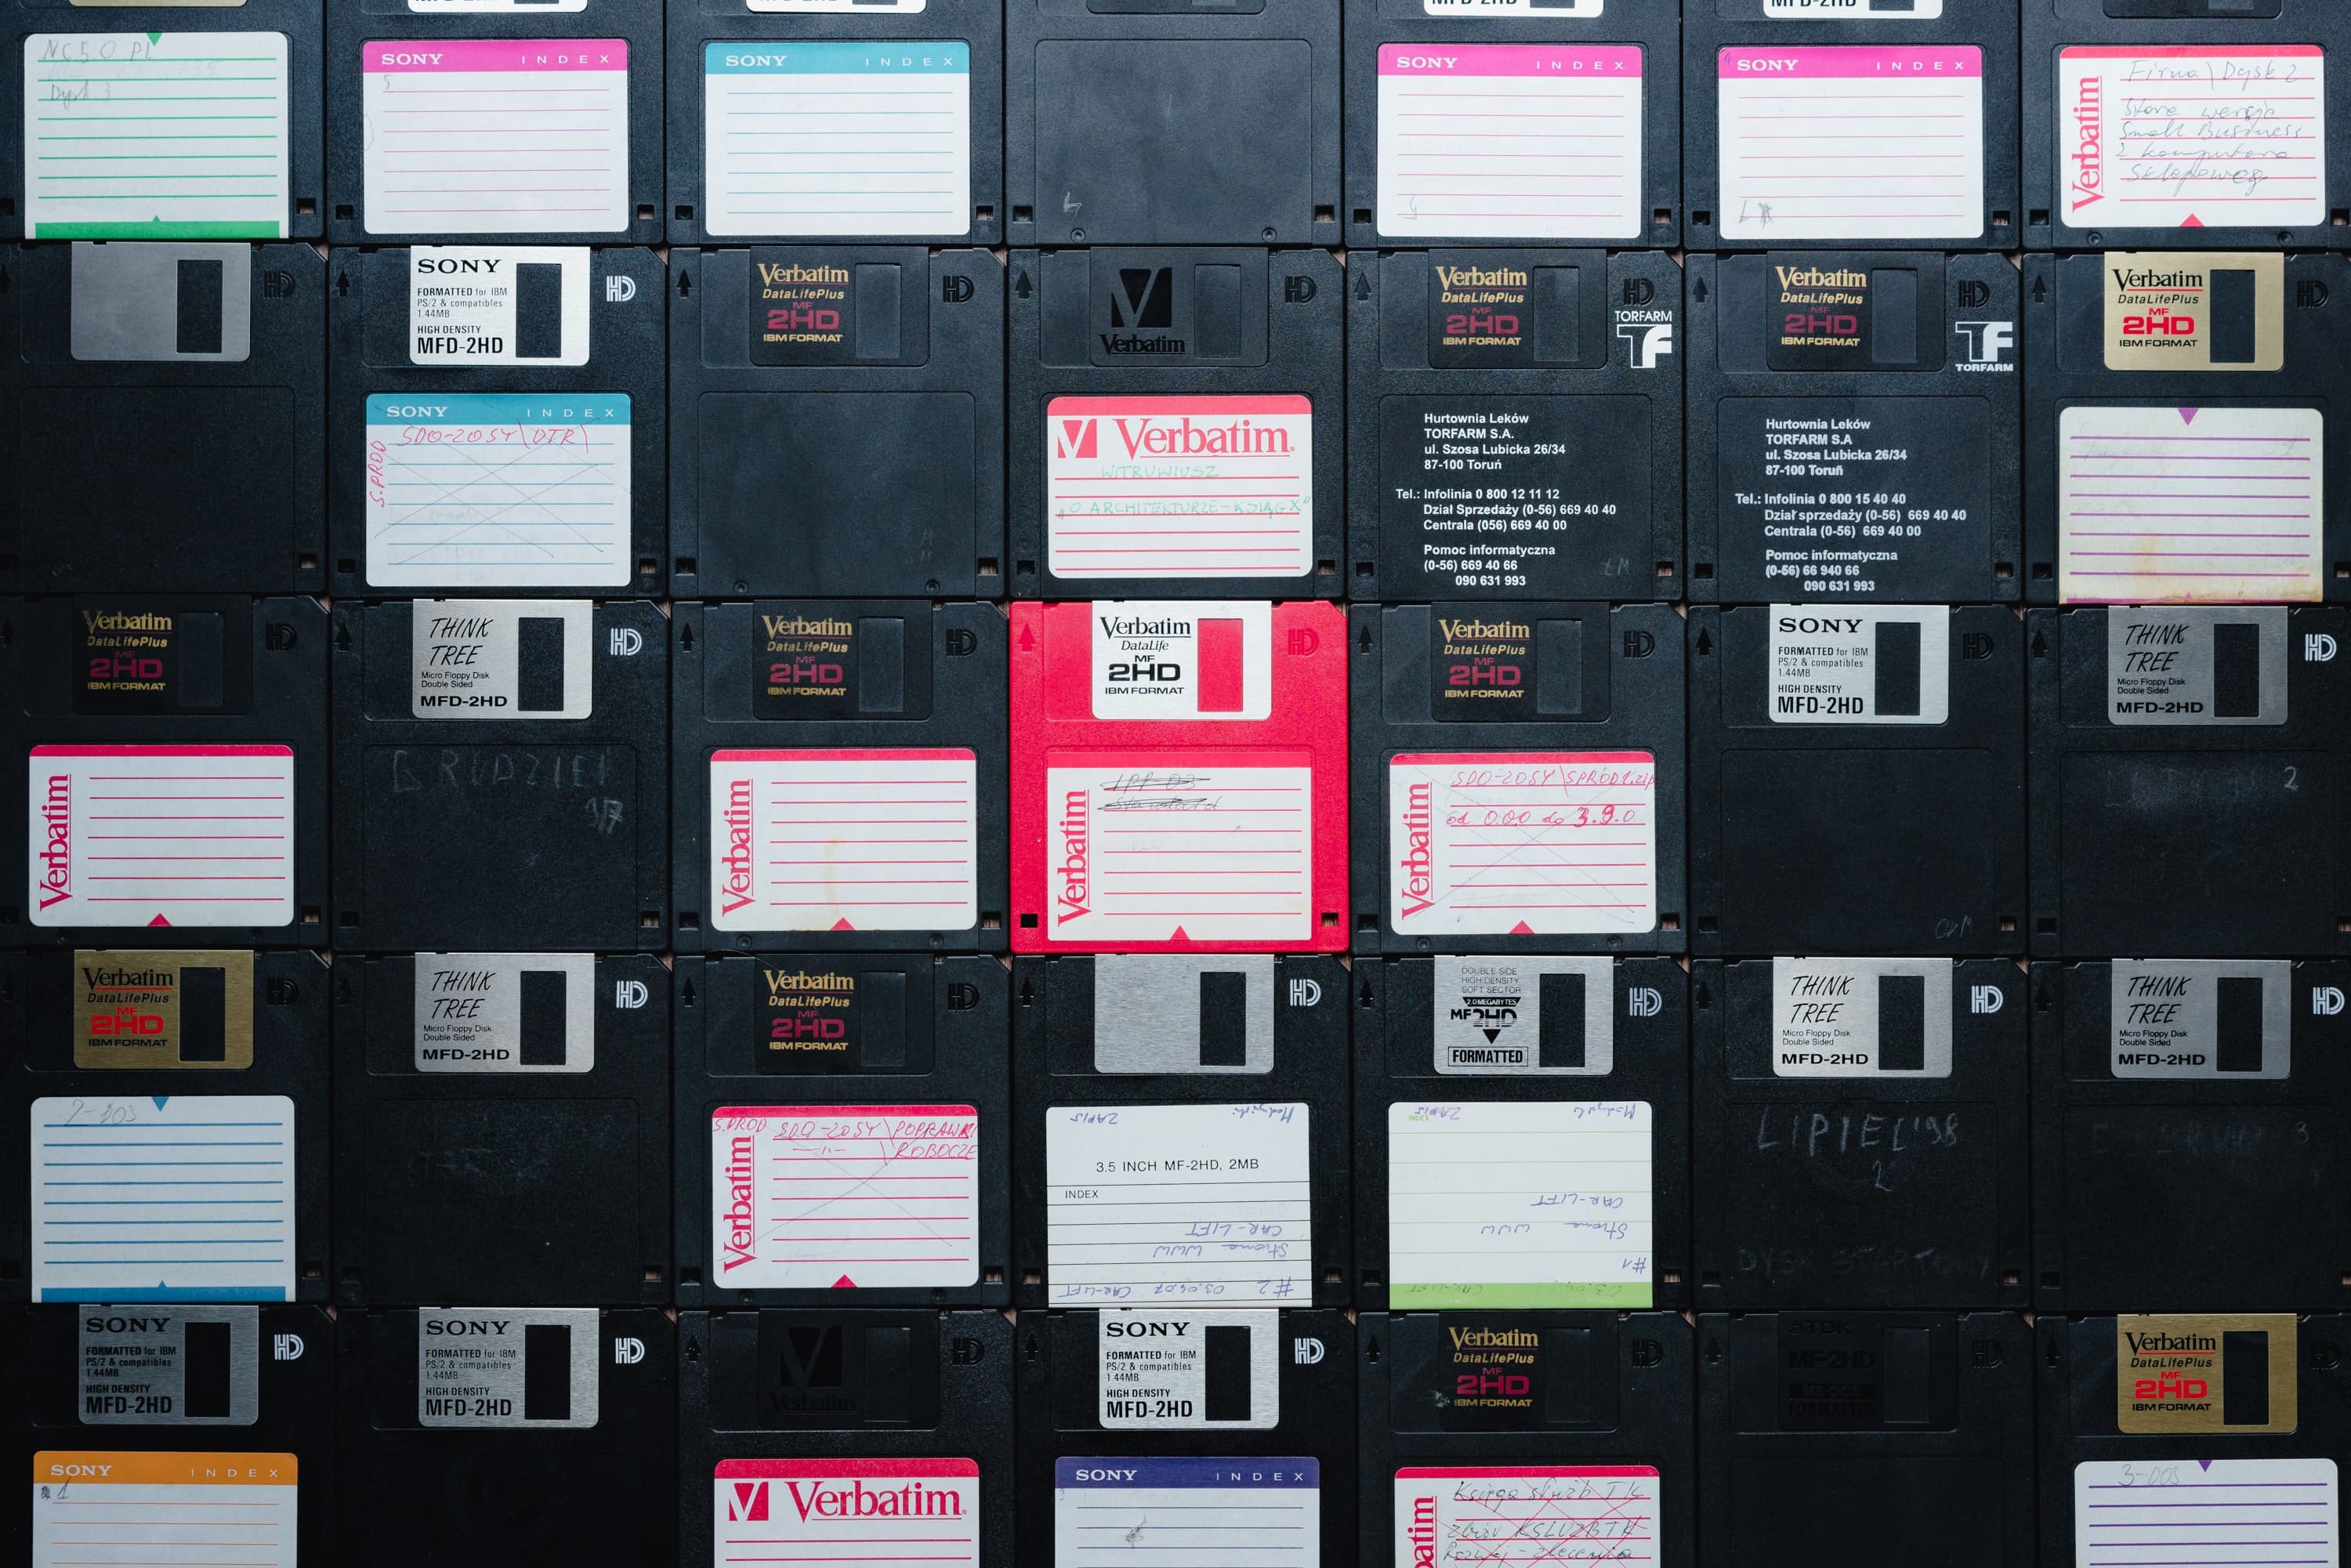 NC 5.0 PL
Dysk 3
SONY INDEX
5
SONY INDEX
SONY INDEX
SONY INDEX
Verbatim
Firma\Dysk 2
Stara wersja
Small Business
z komputera
sklepoweg
SONY
FORMATTED for IBM
PS/2 & compatibles
1.44MB
HIGH DENSITY
MFD-2HD
HD
SONY INDEX
S.PROD
SDO-20SY\DTR\
Verbatim
DataLifePlus
MF
2HD
IBM FORMAT
HD
Verbatim
HD
Verbatim
WITRUWIUSZ
"O ARCHITEKTURZE-KSIĄG X"
Verbatim
DataLifePlus
MF
2HD
IBM FORMAT
HD
TORFARM
TF
Hurtownia Leków
TORFARM S.A.
ul. Szosa Lubicka 26/34
87-100 Toruń
Tel.: Infolinia 0 800 12 11 12
Dział Sprzedaży (0-56) 669 40 40
Centrala (056) 669 40 00
Pomoc informatyczna
(0-56) 669 40 66
090 631 993
Verbatim
DataLifePlus
MF
2HD
IBM FORMAT
HD
TF
TORFARM
Hurtownia Leków
TORFARM S.A
ul. Szosa Lubicka 26/34
87-100 Toruń
Tel.: Infolinia 0 800 15 40 40
Dział sprzedaży (0-56) 669 40 40
Centrala (0-56) 669 40 00
Pomoc informatyczna
(0-56) 66 940 66
090 631 993
Verbatim
DataLifePlus
MF
2HD
IBM FORMAT
HD
Verbatim
DataLifePlus
MF
2HD
IBM FORMAT
HD
Verbatim
THINK
TREE
Micro Floppy Disk
Double Sided
MFD-2HD
HD
Verbatim
DataLifePlus
MF
2HD
IBM FORMAT
HD
Verbatim
Verbatim
DataLife
MF
2HD
IBM FORMAT
HD
Verbatim
Verbatim
DataLifePlus
MF
2HD
IBM FORMAT
HD
Verbatim
SDO-20SY\SPROD1.zip
od 0.0.0 do 3.9.0
SONY
FORMATTED for IBM
PS/2 & compatibles
1.44MB
HIGH DENSITY
MFD-2HD
HD
THINK
TREE
Micro Floppy Disk
Double Sided
MFD-2HD
HD
2
Verbatim
DataLifePlus
MF
2HD
IBM FORMAT
HD
7-DOS
THINK
TREE
Micro Floppy Disk
Double Sided
MFD-2HD
HD
Verbatim
DataLifePlus
MF
2HD
IBM FORMAT
HD
Verbatim
S.PROD SDO-20SY\POPRAWKI
-"- \ROBOCZE
HD
3.5 INCH MF-2HD, 2MB
INDEX
#2 03.04.07 CAR-LIFT
Strona WWW
CAR-LIFT
ZAPIS
DOUBLE SIDE
HIGH DENSITY
SOFT SECTOR
2.0 MEGABYTES
MF2HD
FORMATTED
HD
INDEX
#1
Strona WWW
CAR-LIFT
ZAPIS
THINK
TREE
Micro Floppy Disk
Double Sided
MFD-2HD
HD
LIPIEC'98
2
THINK
TREE
Micro Floppy Disk
Double Sided
MFD-2HD
HD
3
SONY
FORMATTED for IBM
PS/2 & compatibles
1.44MB
HIGH DENSITY
MFD-2HD
HD
SONY INDEX
1
SONY
FORMATTED for IBM
PS/2 & compatibles
1.44MB
HIGH DENSITY
MFD-2HD
HD
Verbatim
HD
Verbatim
SONY
FORMATTED for IBM
PS/2 & compatibles
1.44MB
HIGH DENSITY
MFD-2HD
HD
SONY INDEX
Verbatim
DataLifePlus
MF
2HD
IBM FORMAT
HD
Księga służb TK
Zbiór KSLUZBTK
Rozwój - zlecenia
TDK
MF-2HD
FORMATTED
HD
Verbatim
DataLifePlus
MF
2HD
IBM FORMAT
3-DOS